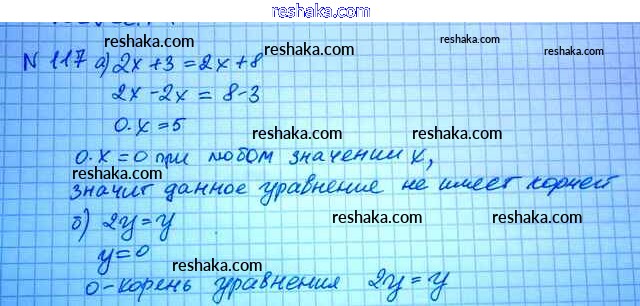 reshaka.com
N 117 а) 2x + 3 = 2x + 8
2x - 2x = 8 - 3
0·x = 5
0·x = 0 при любом значении x,
значит данное уравнение не имеет корней
б) 2y = y
y = 0
0 - корень уравнения 2y = y
reshaka.com reshaka.com reshaka.com
reshaka.com reshaka.com reshaka.com
reshaka.com reshaka.com reshaka.com
reshaka.com reshaka.com reshaka.com
reshaka.com reshaka.com reshaka.com